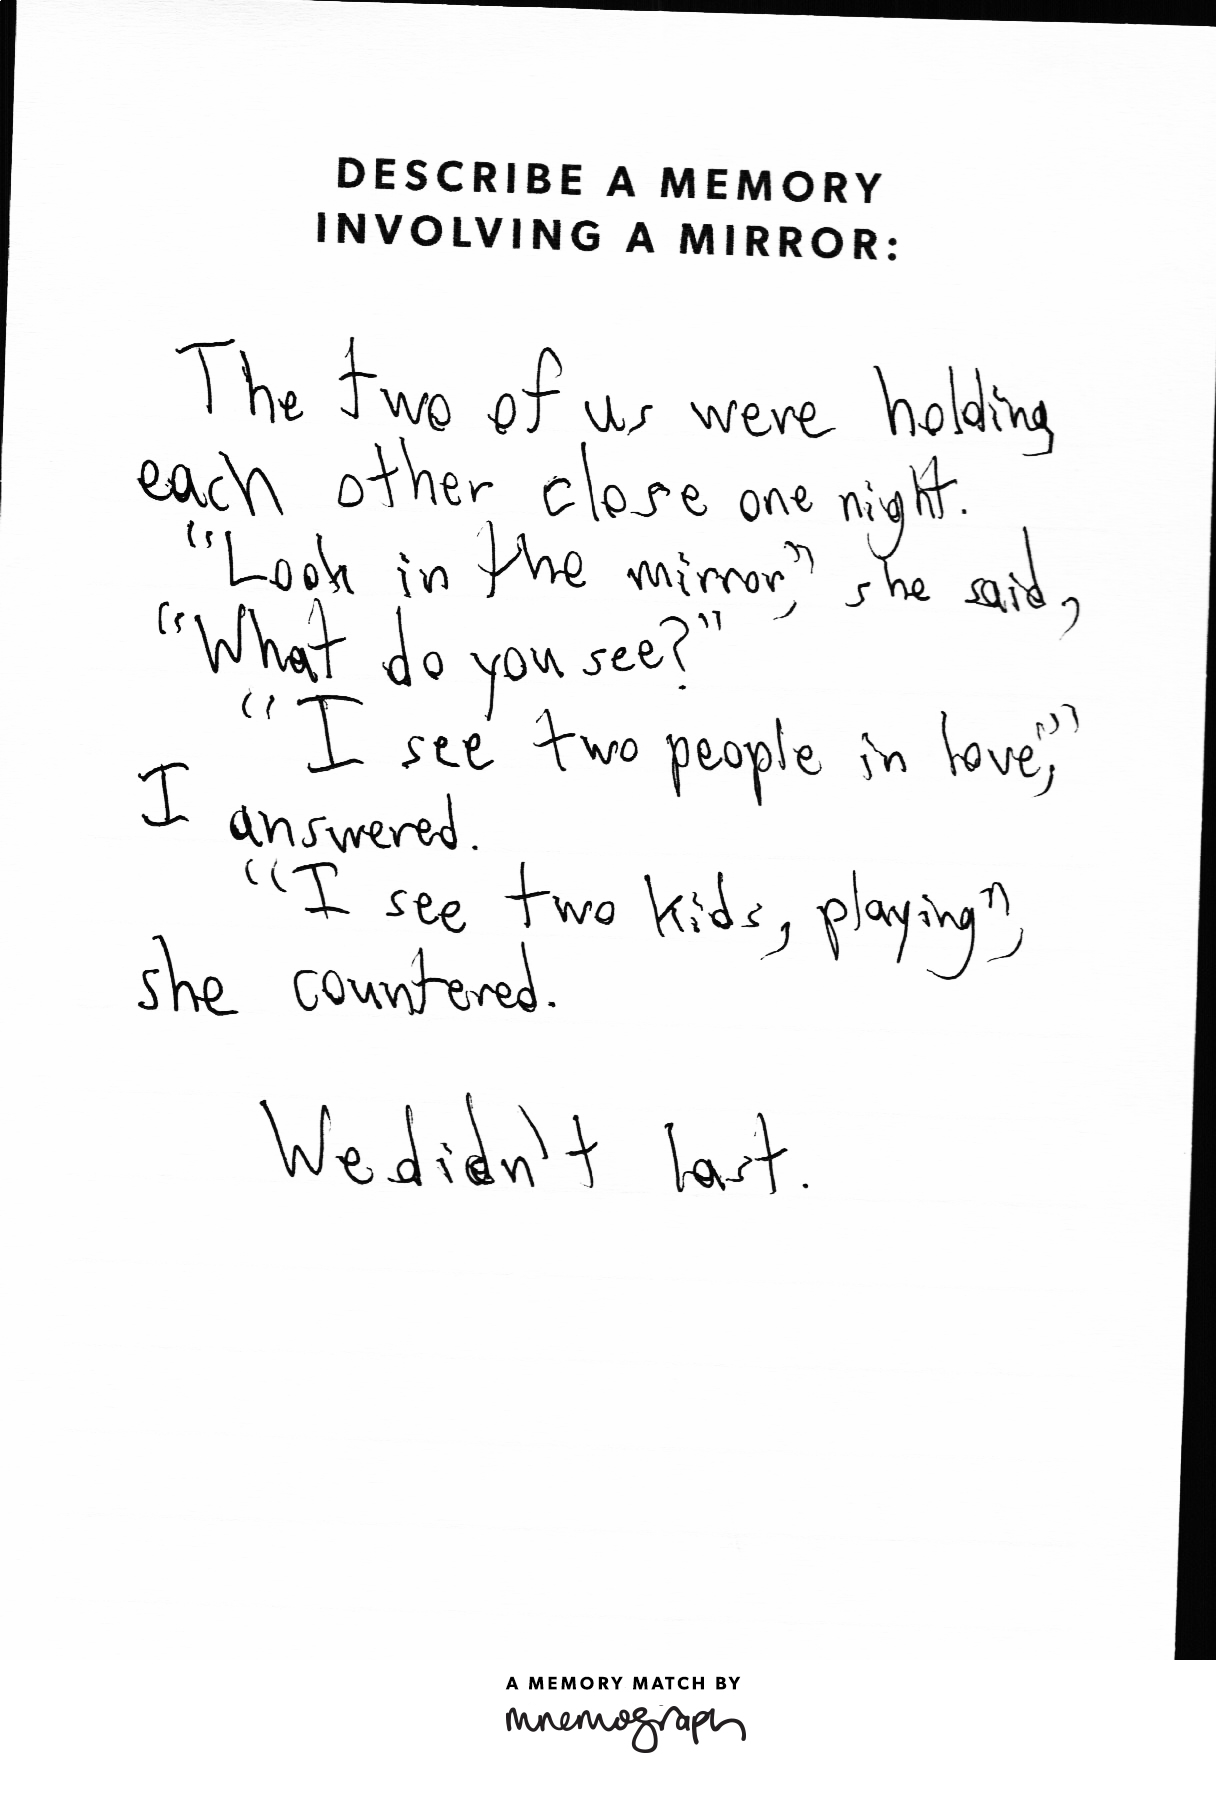 DESCRIBE A MEMORY
INVOLVING A MIRROR:
The two of us were holding
each other close one night.
"Look in the mirror," she said,
"What do you see?"
"I see two people in love,"
I answered.
"I see two kids, playing",
she countered.
We didn't last.
A MEMORY MATCH BY
mnemograph